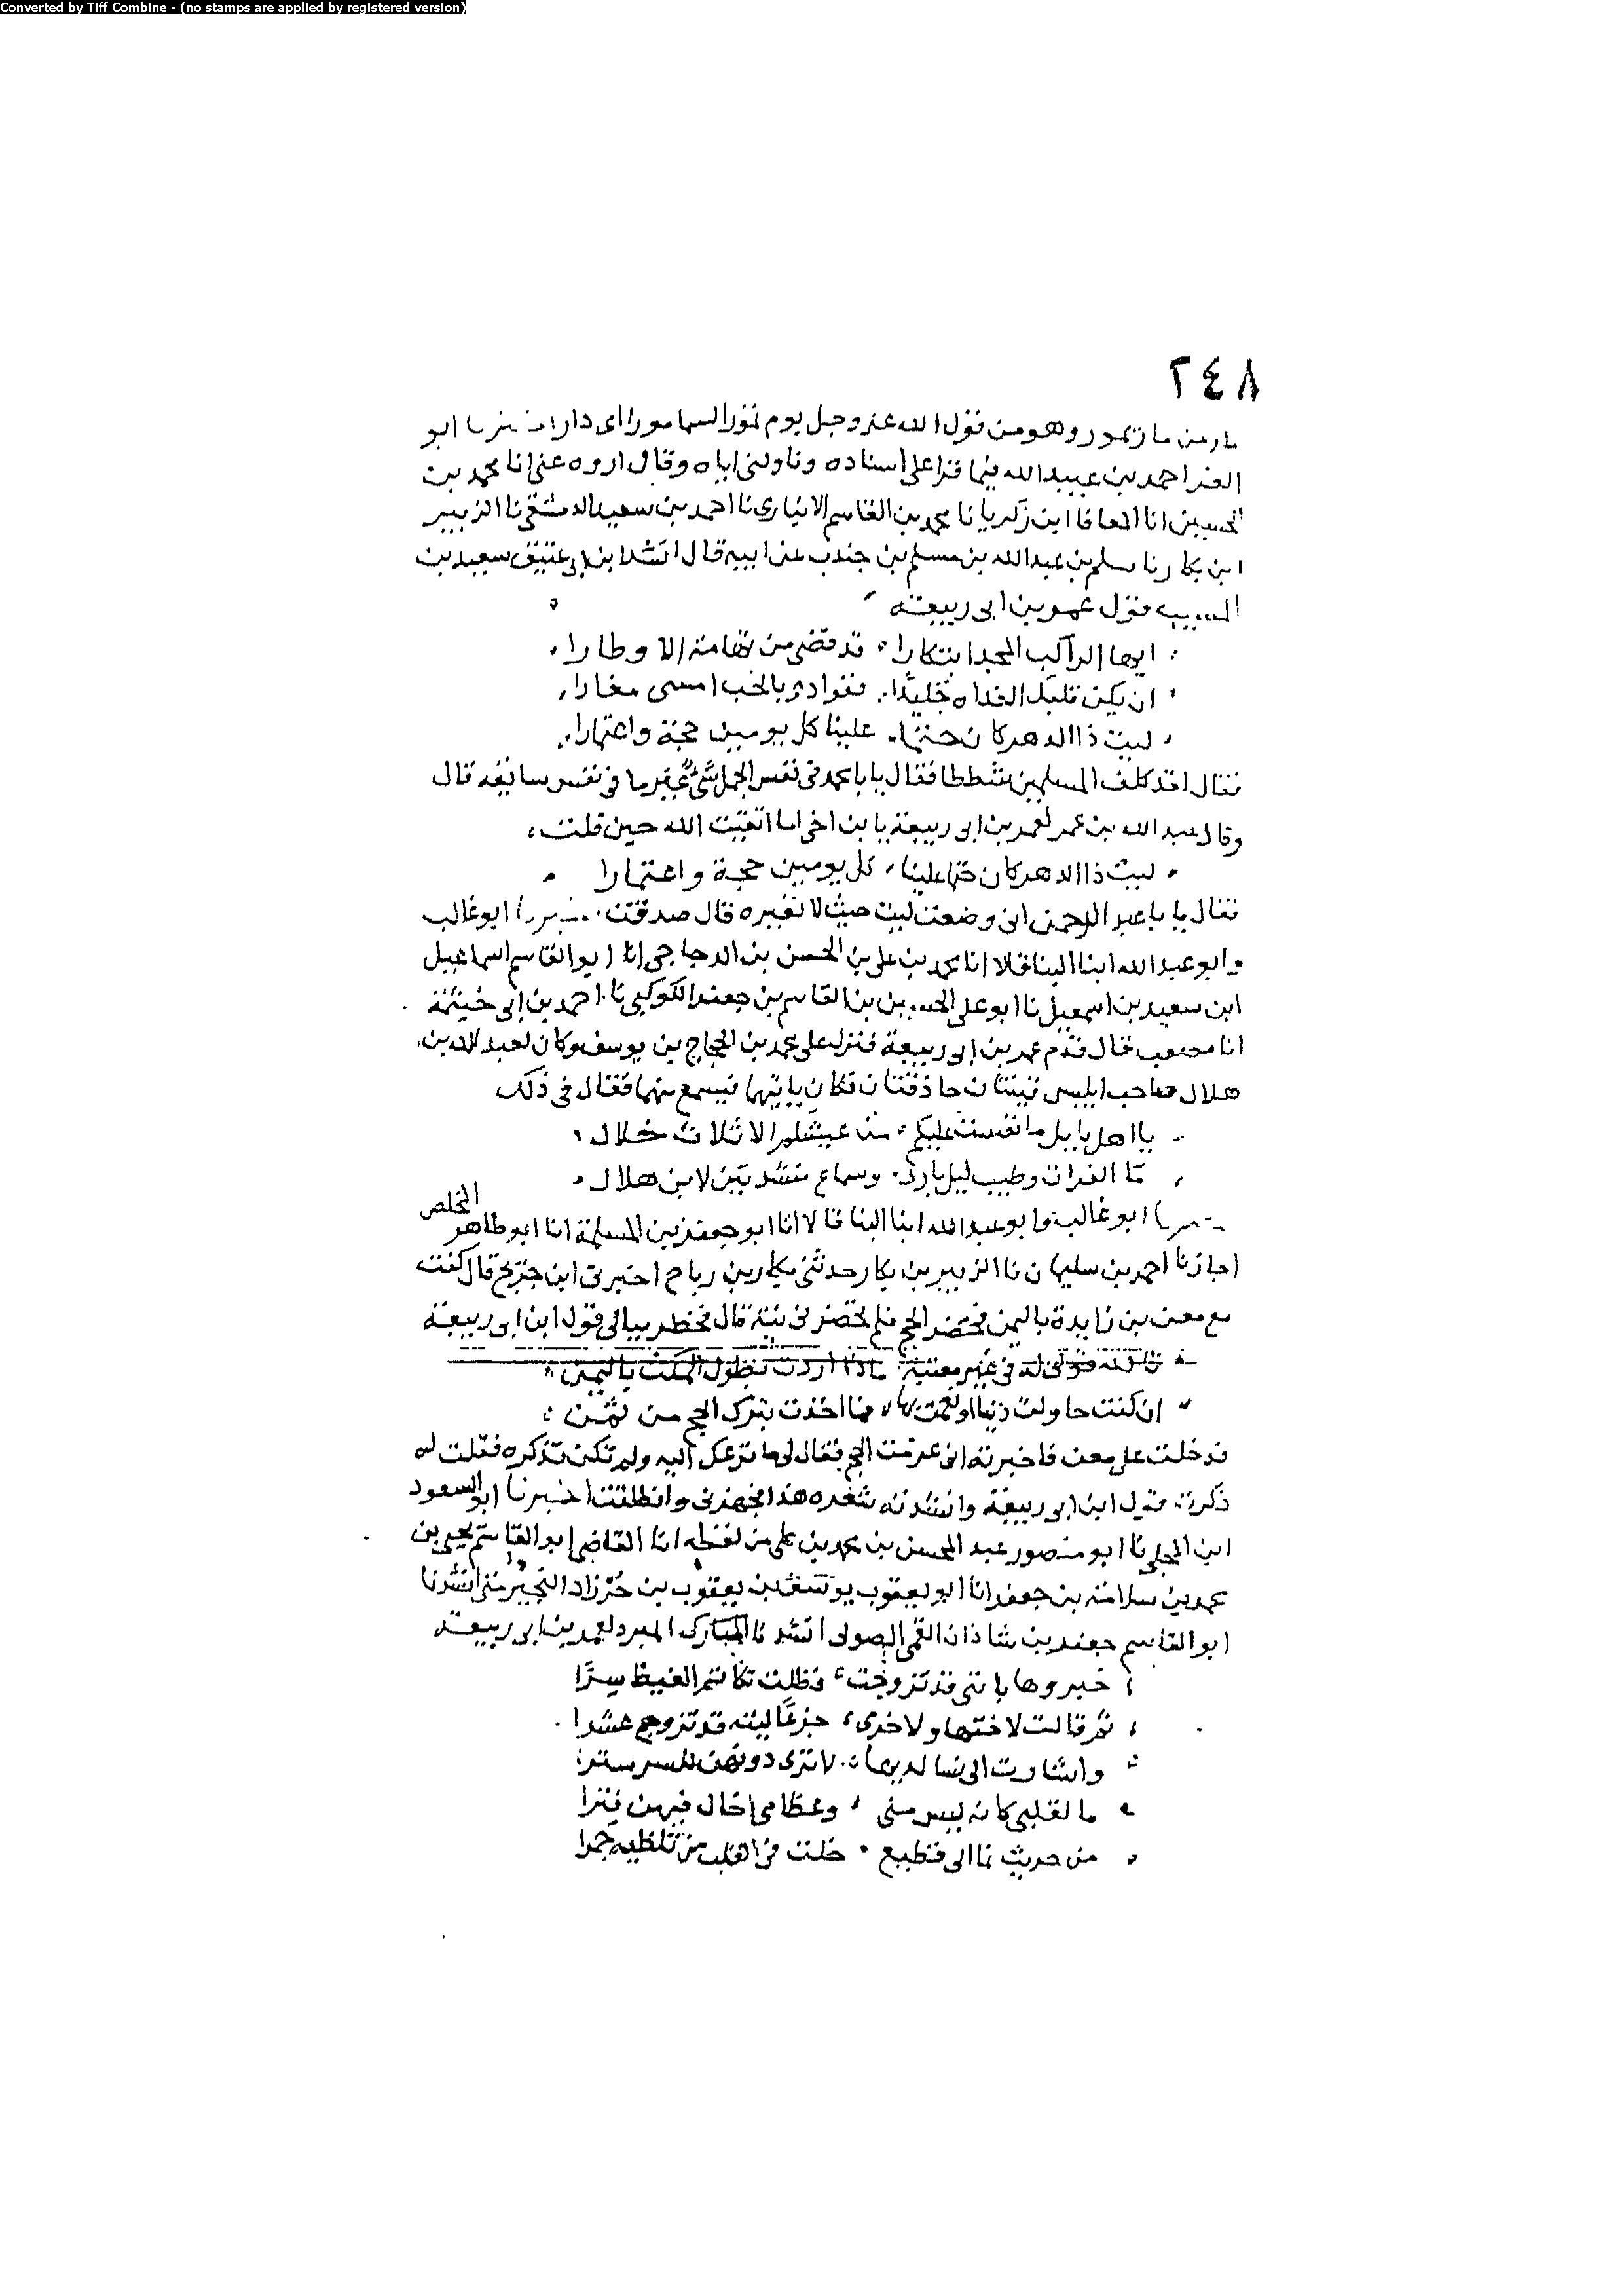 Converted by Tiff Combine - (no stamps are applied by registered version)
٢٤٨
مار من ما ر يمور وهو من قول الله عز وجل يوم تمور السما مورا اى دار اخبرنا ابو
العز احمد بن عبيد الله فيما قرا على اسناده وناولنى اياه وقال اروه عنى انا محمد بن
الحسين انا المعافا ابن زكريا نا محمد بن القاسم الانبارى نا احمد بن سعيد الدمشقى نا الزبير
ابن بكار نا مسلم بن عبد الله بن مسلم بن جندب عن ابيه قال انشد ابن ابى عتيق سعيد بن
المسيب قول عمر بن ابى ربيعة
ايها الراكب المجد ابتكارا قد قضى من تهامة الاوطارا
ان يكن قلبك الغداة خليدا ففوادى بالخب امسى معارا
ليت ذا الدهر كان حتما علينا كل يومين حجة واعتمارا
فقال لقد كلف المسلمين شططا فقال يابا محمد فى نفس الجمل شى غير ما فى نفس سايقه قال
وقال عبد الله بن عمر لعمر بن ابى ربيعة يا بن اخى اما اتقيت الله حين قلت
ليت ذا الدهر كان حتما علينا كل يومين حجة واعتمارا
فقال يا با عبد الرحمن انى وضعت ليت حيث لا تغيره قال صدقت اخبرنا ابو غالب
وابو عبد الله ابنا البنا قالا انا محمد بن على بن الحسن بن الدجاجى انا ابو القاسم اسماعيل
ابن سعيد بن اسمعيل نا ابو على الحسين بن القاسم بن جعفر الكوكبى نا احمد بن ابى خيثمة
انا مصعب قال قدم عمر بن ابى ربيعة فنزل على محمد بن الحجاج بن يوسف وكان لعبد الله بن
هلال صاحب ابليس قينتان حاذقتان فكان ياتيهما فيسمع منهما فقال فى ذلك
يا اهل بابل ما نفست عليكم من عيشكم الا ثلاث خلال
ما الفرات وطيب ليل بارد وسماع منشدتين لابن هلال
اخبرنا ابو غالب وابو عبد الله ابنا البنا قالا انا ابو جعفر بن المسلمة انا ابو طاهر المخلص
اجازنا احمد بن سليمان نا الزبير بن بكار حدثنى بكار بن رباح اخبرنى ابن جريج قال كنت
مع معن بن زايدة باليمن فحضر الحج فلم تحضرنى نية قال فخطر ببالى قول ابن ابى ربيعة
تالله قولى له فى غير معتبة ماذا اردت بطول المكث باليمن
ان كنت حاولت دنيا او نعمت بها فما اخذت بترك الحج من ثمن
فدخلت على معن فاخبرته انى عزمت الحج فقال لى ما نزعك اليه ولم تكن تذكره فقلت له
ذكرت قول ابن ابى ربيعة وانشدته شعره هذا فجهزنى وانطلقت اخبرنا ابو السعود
ابن المجلى نا ابو منصور عبد المحسن بن محمد بن على من لفظه انا القاضى ابو القاسم يحيى بن
محمد بن سلامة بن جعفر انا ابو يعقوب يوسف بن يعقوب بن خرزاد النجيرمى انشدنا
ابو القاسم جعفر بن شاذان القمى الصولى انشدنا المبارك المبرد لعمر بن ابى ربيعة
خبروها باننى قد تزوجت فظلت تكاتم الغيظ سرا
ثم قالت لاختها ولاخرى جزعا ليته قد تزوج عشرا
واشارت الى نسا لديها لا ترى دونهن للسر سترا
ما لقلبى كانه ليس منى وعظامى اخال فيهن فترا
من حديث نما الى فظيع خلت فى القلب من تلظيه جمرا